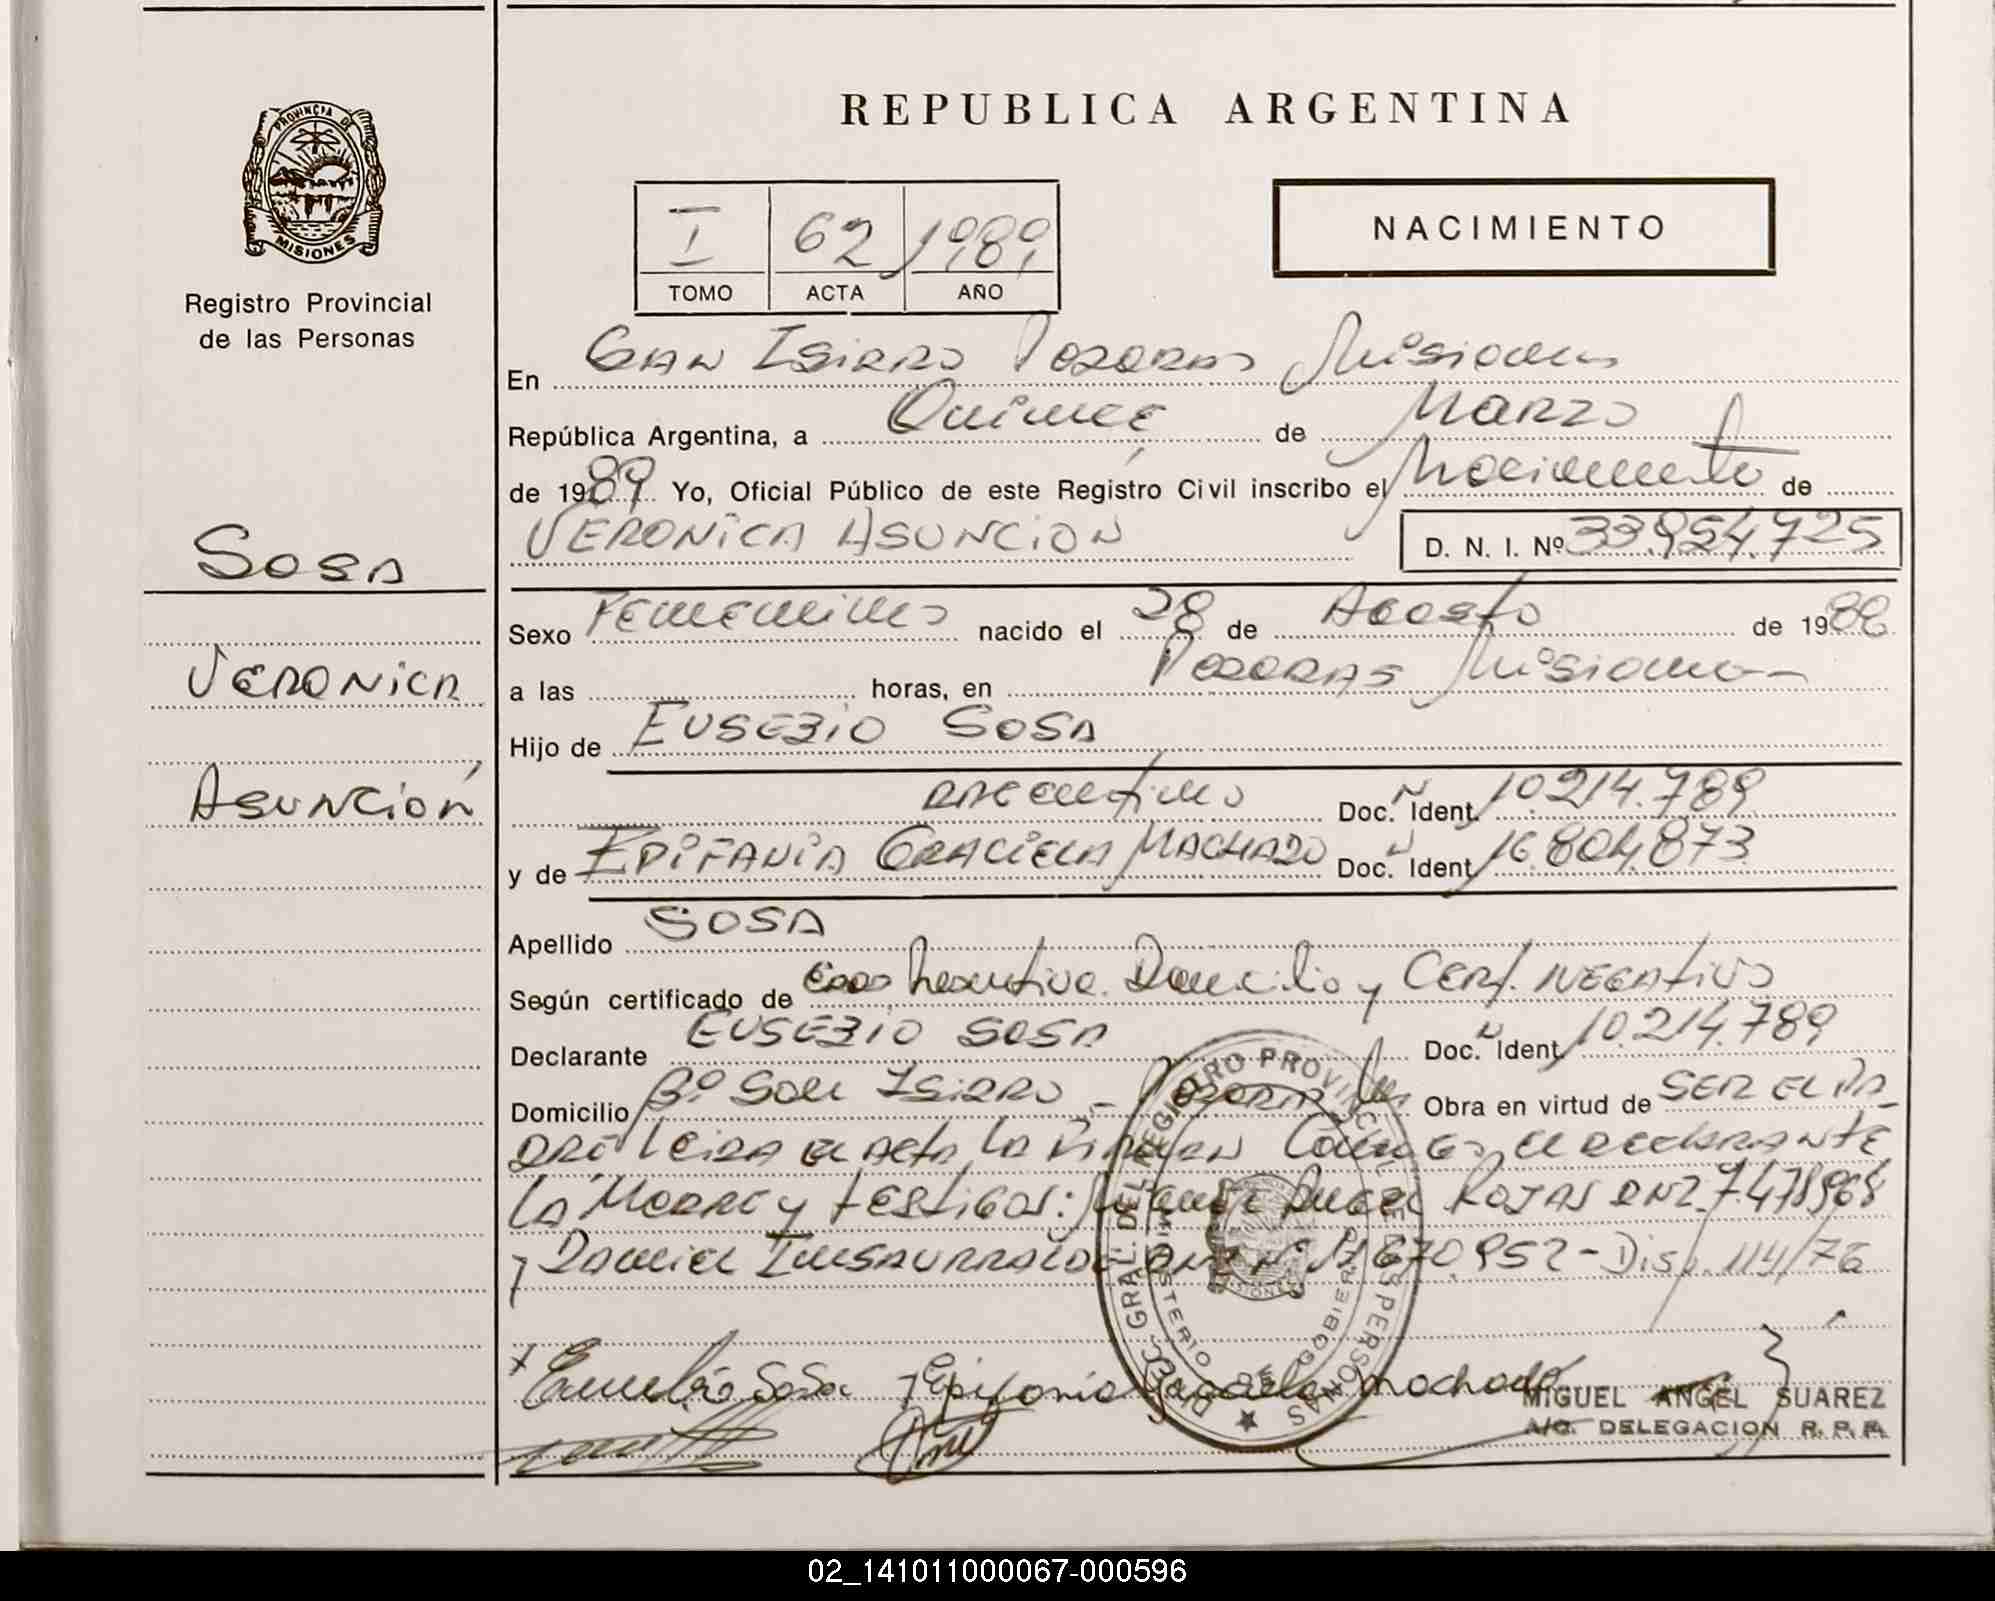 REPUBLICA ARGENTINA
PROVINCIA DE
MISIONES
Registro Provincial
de las Personas
I 62 1989
TOMO ACTA AÑO
NACIMIENTO
En San Isidro Posadas Misiones
República Argentina, a Quince de Marzo
de 1989 Yo, Oficial Público de este Registro Civil inscribo el Nacimiento de
VERONICA ASUNCION D. N. I. Nº 33.954.725
SOSA
VERONICA
ASUNCIÓN
Sexo Femenino nacido el 28 de Agosto de 1988
a las horas, en Posadas Misiones
Hijo de EUSEBIO SOSA
Argentino Doc. N Ident. 10.214.789
y de EPIFANIA GRACIELA MACHADO Doc. N Ident. 16.804.873
Apellido SOSA
Según certificado de Domicilio y CERT. NEGATIVO
Declarante EUSEBIO SOSA Doc. N Ident. 10.214.789
Domicilio Bº San Isidro - Posadas Mnes Obra en virtud de SER EL PA-
DRE LEIDA EL ACTA LA FIRMAN CONMIGO EL DECLARANTE
LA MADRE y TESTIGOS: ROJAS DNI 7.478968
y DANIEL INSAURRALDE DNI N 11.670.952 - Disp. 114/76
Eusebio Sosa Epifania Graciela machado
MIGUEL ANGEL SUAREZ
A/C. DELEGACION R. P. P.
DIREC. GRAL. DEL REGISTRO PROVINCIAL DE LAS PERSONAS
MINISTERIO DE GOBIERNO
MISIONES
02_141011000067-000596